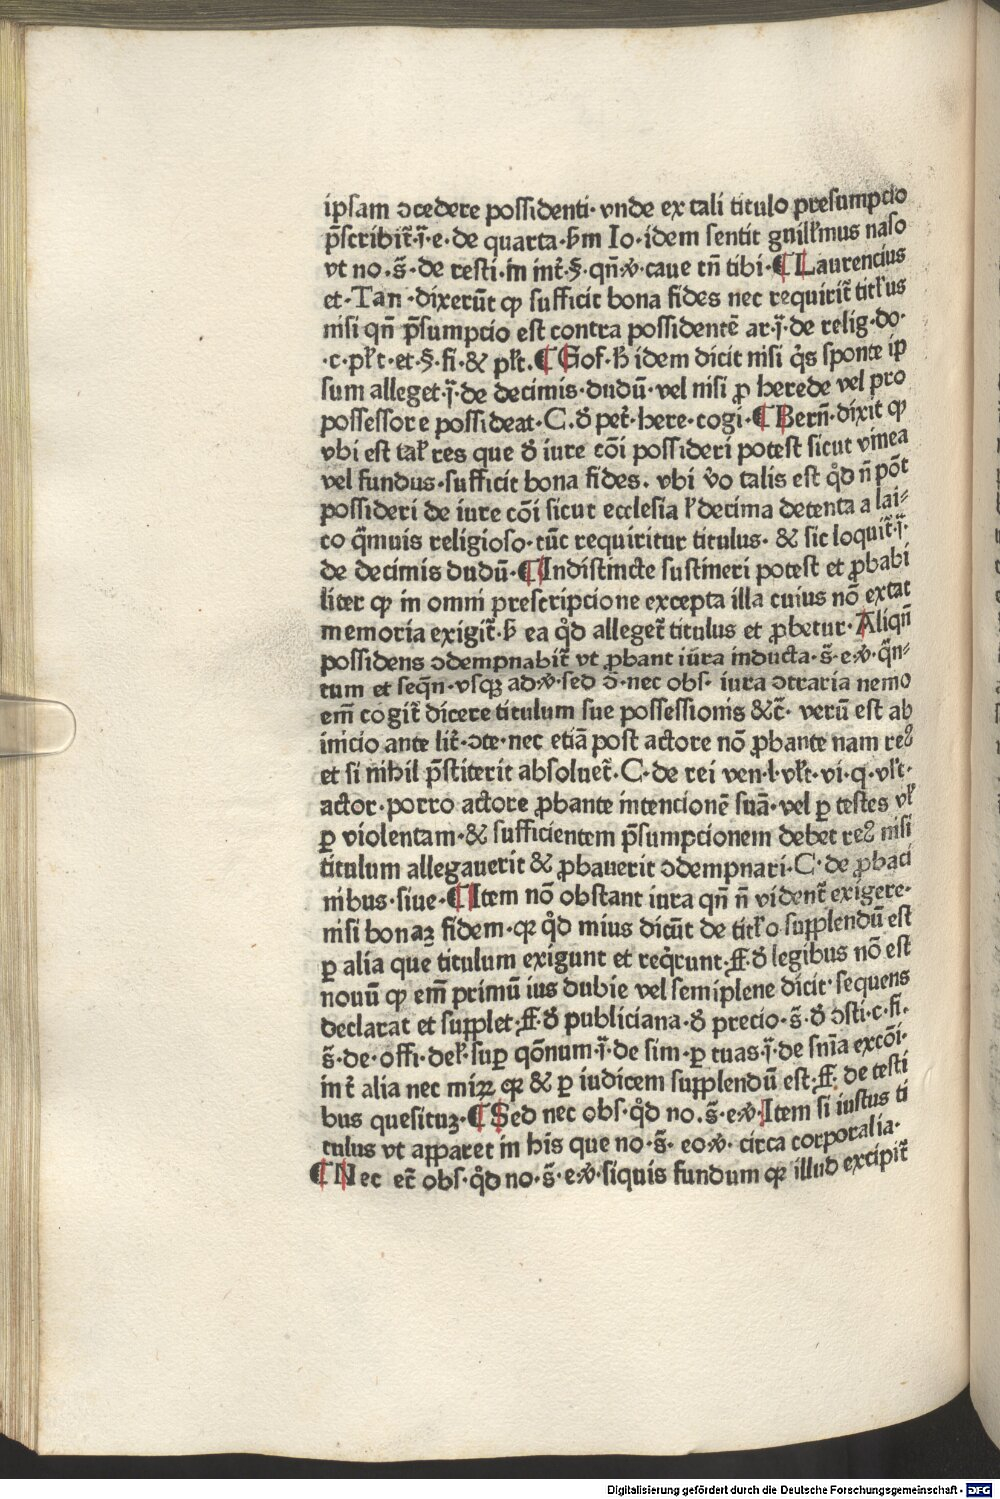 ipsam ↄcedere possidenti· vnde ex tali titulo presumpcio
p̄scribit̄·ī·e·de quarta·ẜm Io·idem sentit guill'mus naso
vt no·s̄·de resti·in int̄·§·qn̄·ꝟ·caue tn̄ tibi·¶ Laurencius
et·Tan·dixerūt ꝙ sufficit bona fides nec requirit̄ titl'us
nisi qn̄ p̄sumpcio est contra possidentē ar·ī·de relig·do·
·c·pl't·et·§·fi·& pl't.¶ Gof·ẜ idem dicit nisi q̇s sponte ip
sum alleget·ī·de decimis·dudū·vel nisi ꝓ herede vel pro
possessore possideat·C·ꝺ̄ pet̄·here·cogi·¶ Bern̄·dixit ꝙ
vbi est tal' res que ꝺ̄ iure cōi possideri potest sicut vinea
vel fundus·sufficit bona fides. vbi v̄o talis est qd̊ n̄ pōt
possideri de iure cōi sicut ecclesia l' decima detenta a lai⸗
co q̄muis religioso·tūc requiritur titulus· & sic loquit̄·ī·
de decimis dudū·¶ Indistincte sustineri potest et ꝓbabi
liter ꝙ in omni prescripcione excepta illa cuius nō extat
memoria exigit̄·ẜ ea qd̊ alleget̄ titulus et ꝓbetur·Aliqn̄
possidens ↄdempnabit̄ vt ꝓbant iūra inducta·s̄·e·ꝟ·q̄n⸗
tum et seq̄n·vsqꝫ ad·ꝟ·sed ↄ̄·nec obs· iura ↄtraria nemo
em̄ cogit̄ dicere titulum sue possessionis &c̄· verū est ab
inicio ante lit̄·ↄte·nec etiā post actore nō ꝓbante nam reꝰ
et si nihil p̄stiterit absoluet̄·C·de rei ven·l·vl't·vi·q·vl't·
actor·porro actore ꝓbante intencionē suā·vel ꝑ testes vl'
ꝑ violentam·& sufficientem p̄sumpcionem debet reꝰ nisi
titulum allegauerit & ꝓbauerit ↄdempnari·C·de ꝓbaci
nibus·siue·¶ Item nō obstant iura qn̄ n̄ vident̄ exigere·
nisi bonaꝫ fidem·qꝛ qd̊ mius dicūt de titl'o supplendū est
ꝑ alia que titulum exigunt et req̇runt·ff·ꝺ̄ legibus nō est
nouū ꝙ em̄ primū ius dubie vel semiplene dicit· sequens
declarat et supplet·ff·ꝺ̄ publiciana·ꝺ̄ precio·s̄·ꝺ̄ ↄsti·c·fi·
s̄·de·offi·del'·suꝑ qōnum·ī·de sim·ꝑ tuas·ī·de sn̄ia excōi·
int̄ alia nec miꝝ qꝛ & ꝑ iudicem supplendū est·ff· de testi
bus quesituꝫ·¶ Sed nec obs·qd̊ no.s̄·e·ꝟ·Item si iustus ti
tulus vt apparet in his que no·s̄· eo·ꝟ· circa corporalia·
¶ Nec ec̄ obs·qd̊ no·s̄·e·ꝟ·siquis fundum qꝛ illud excipit̄
Digitalisierung gefördert durch die Deutsche Forschungsgemeinschaft - DFG